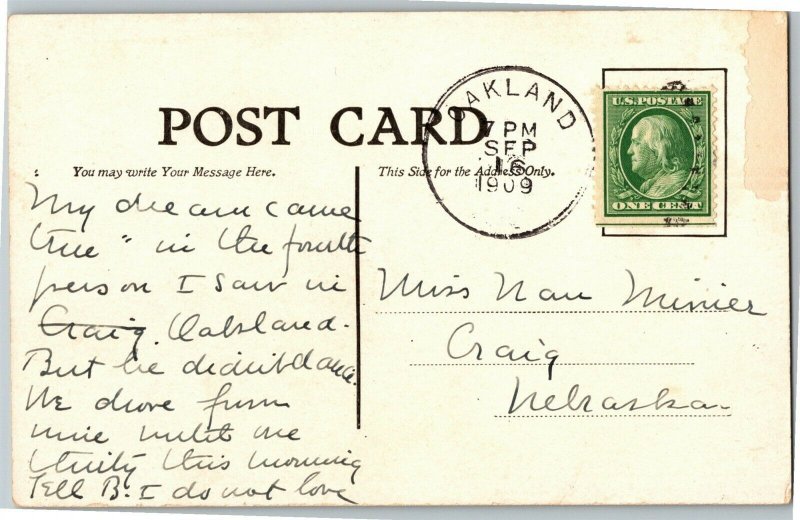 POST CARD
OAKLAND
7 PM
SEP
16
1909
U.S. POSTAGE
ONE CENT
You may write Your Message Here.
This Side for the Address Only.
My dream came
true" in the fourth
person I saw in
Craig. Oakland.
But he didn't dance.
We drove from
nine until one
thirty this morning
Tell B. I do not love
Miss Nan Minier
Craig
Nebraska.